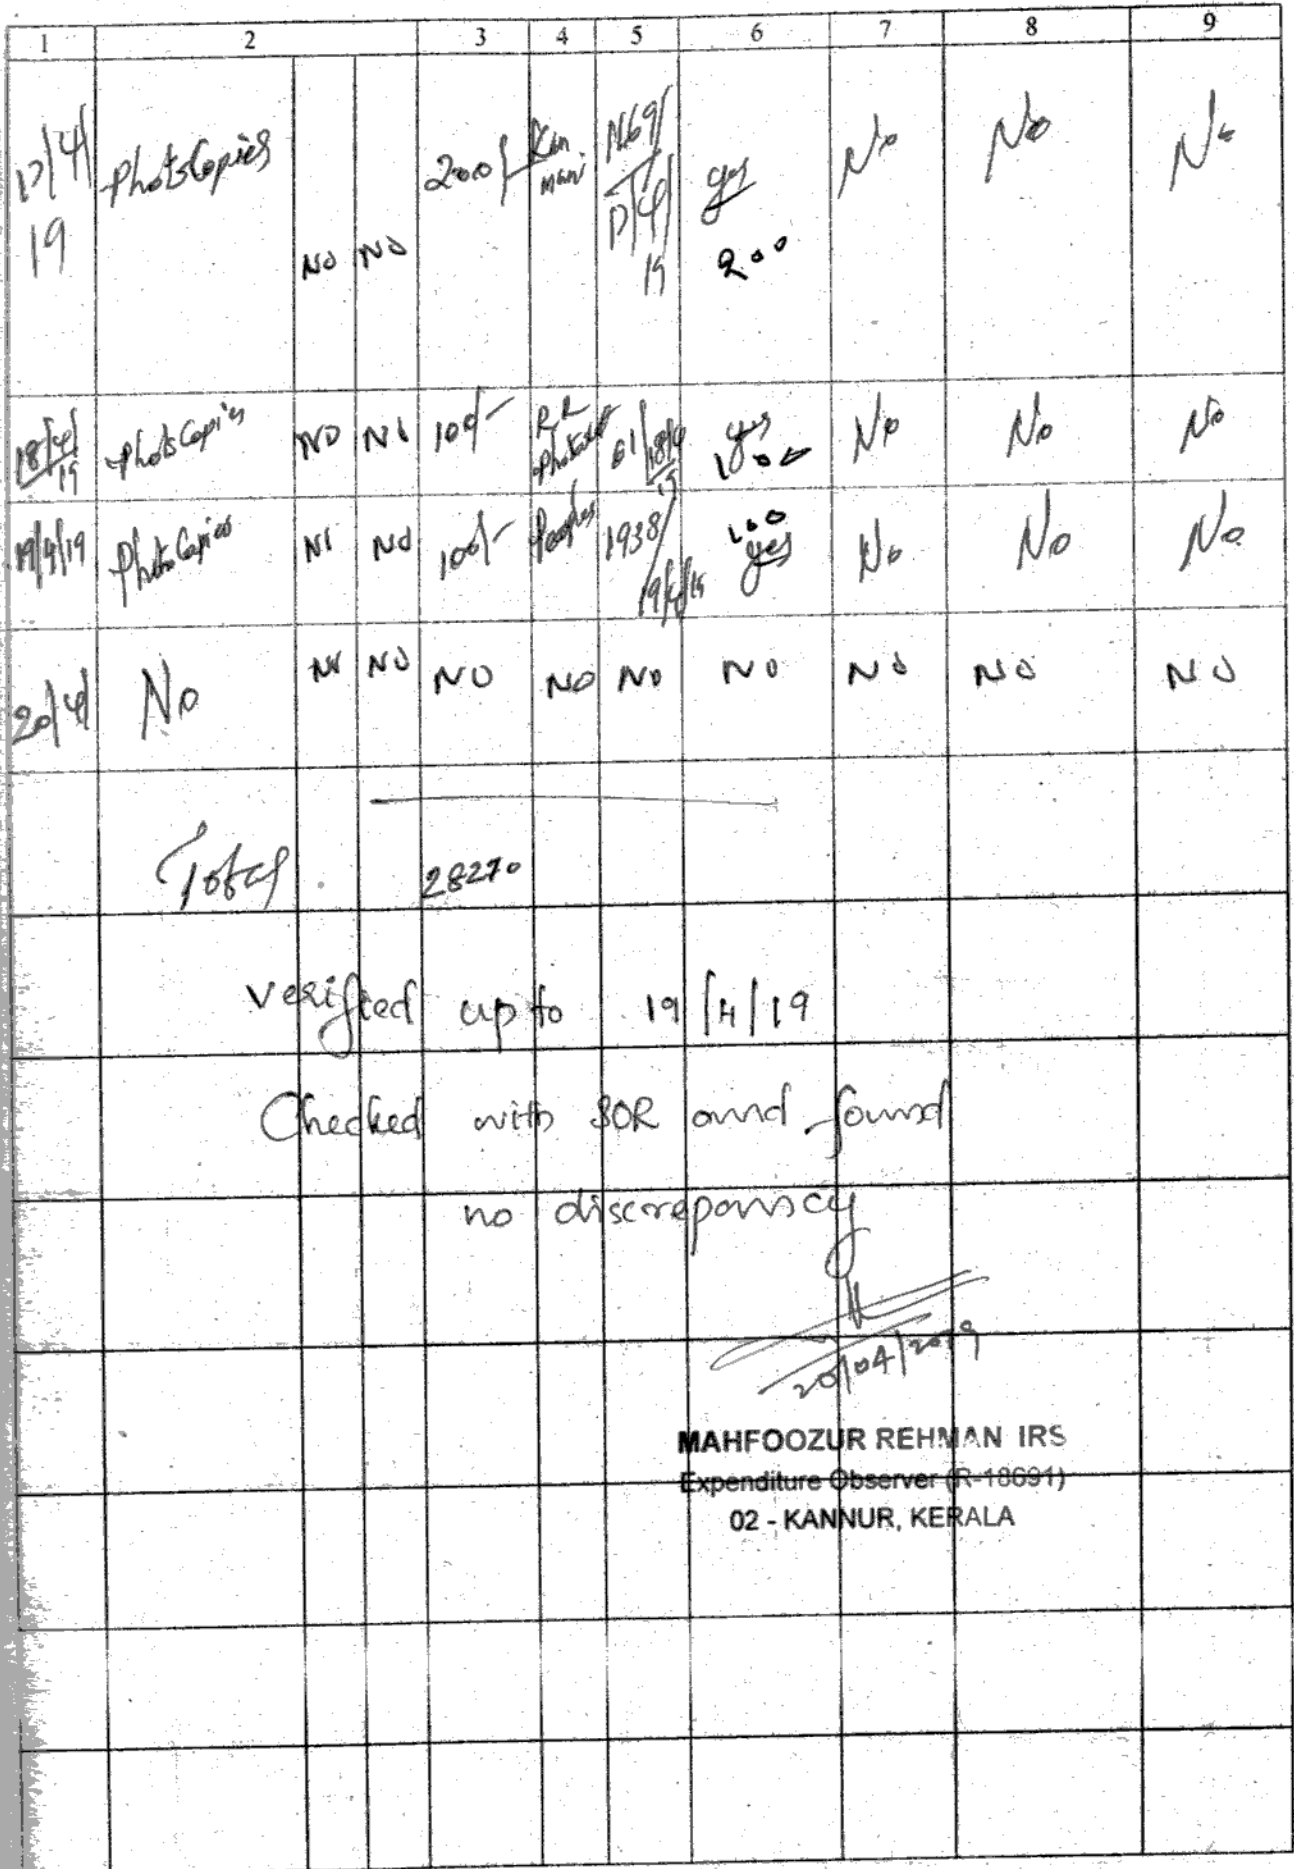 1 2 3 4 5 6 7 8 9
17/4/19 Photocopies NO NO 200/- Kan mani 1169/17/4/19 yes 200 No No No
18/4/19 Photocopies NO NO 100/- RR 61/18/4/19 yes 100 No No No
19/4/19 Photo Copies NO NO 100/- Peoples 1938/19/4/19 100 yes No No No
20/4/ No NO NO NO NO NO NO NO NO NO
Total 28270
verified up to 19/4/19
Checked with SOR and found
no discrepancy
20/04/2019
MAHFOOZUR REHMAN IRS
Expenditure Observer (R-18691)
02 - KANNUR, KERALA